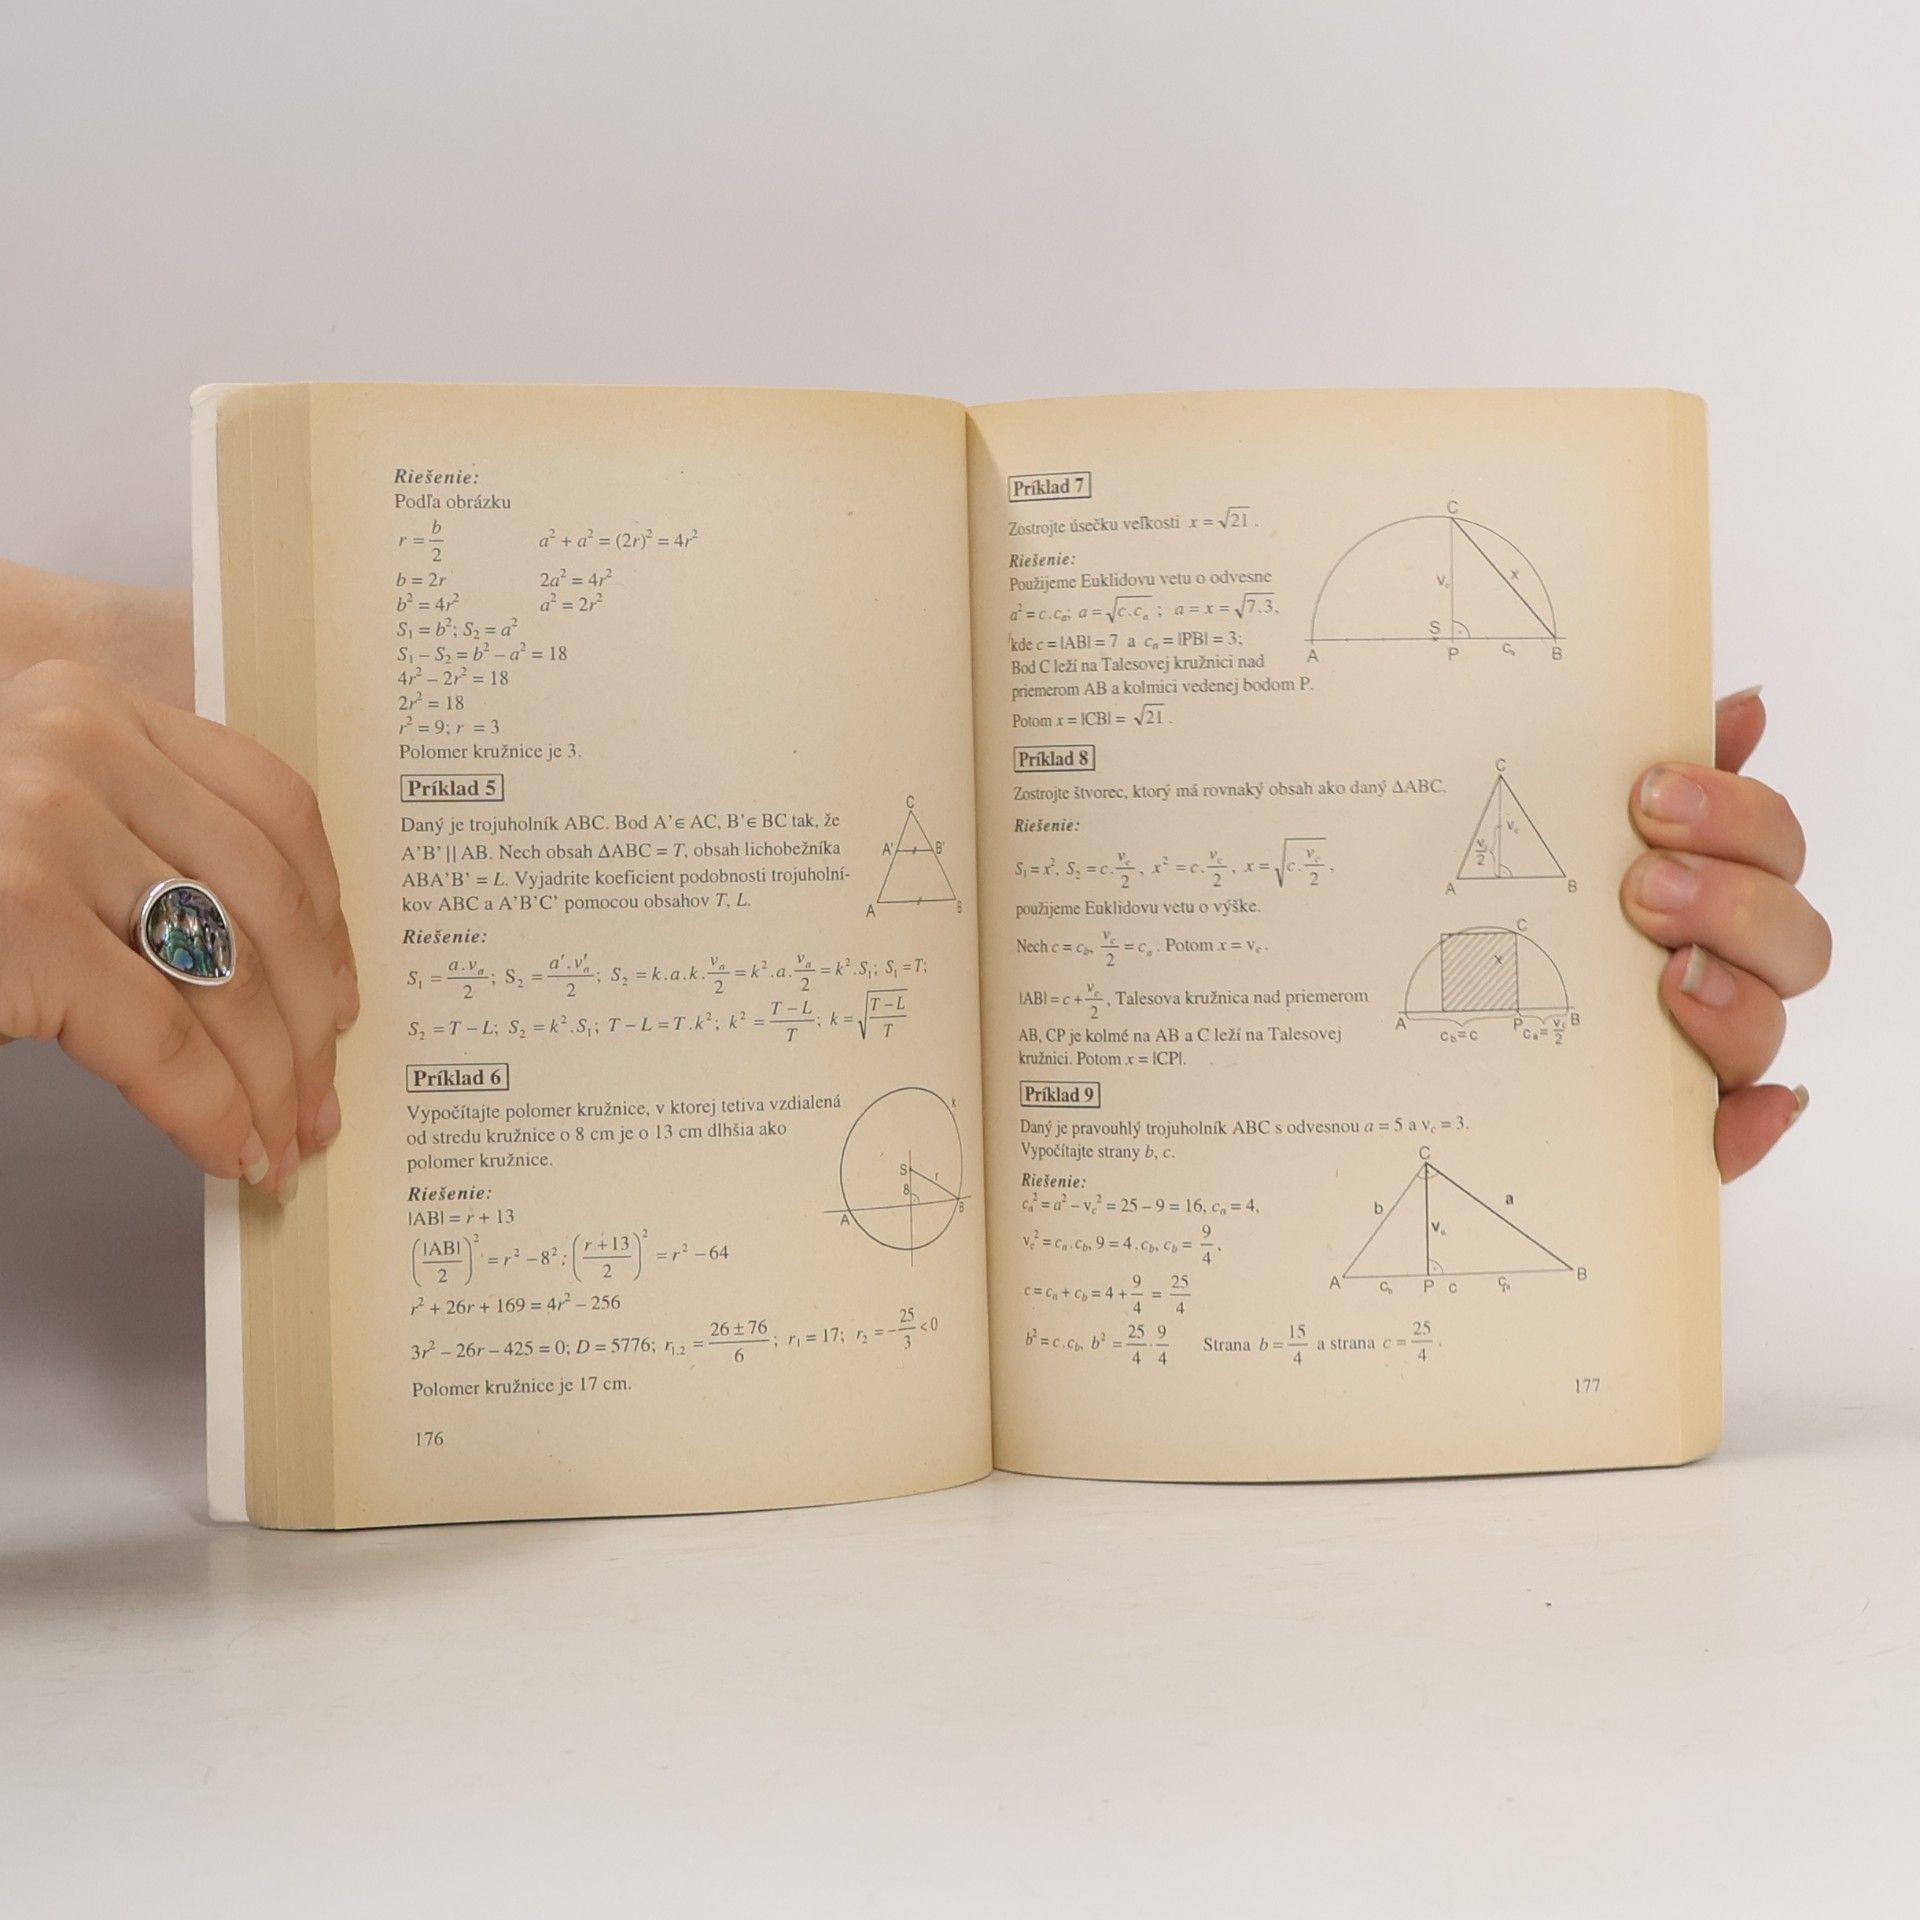 Riešenie:
Podľa obrázku
r = b/2 a² + a² = (2r)² = 4r²
b = 2r 2a² = 4r²
b² = 4r² a² = 2r²
S₁ = b²; S₂ = a²
S₁ – S₂ = b² – a² = 18
4r² – 2r² = 18
2r² = 18
r² = 9; r = 3
Polomer kružnice je 3.
Príklad 5
Daný je trojuholník ABC. Bod A’∈ AC, B’∈ BC tak, že
A’B’ || AB. Nech obsah ΔABC = T, obsah lichobežníka
ABA’B’ = L. Vyjadrite koeficient podobnosti trojuholní-
kov ABC a A’B’C’ pomocou obsahov T, L.
C
A' B'
A B
Riešenie:
S₁ = a.vₐ/2; S₂ = a′.v′ₐ/2; S₂ = k.a.k.vₐ/2 = k².a.vₐ/2 = k².S₁; S₁ = T;
S₂ = T – L; S₂ = k².S₁; T – L = T.k²; k² = (T – L)/T; k = √((T – L)/T)
Príklad 6
Vypočítajte polomer kružnice, v ktorej tetiva vzdialená
od stredu kružnice o 8 cm je o 13 cm dlhšia ako
polomer kružnice.
k
S r
8
A B
Riešenie:
|AB| = r + 13
(|AB|/2)² = r² – 8²; ((r + 13)/2)² = r² – 64
r² + 26r + 169 = 4r² – 256
3r² – 26r – 425 = 0; D = 5776; r₁,₂ = (26 ± 76)/6; r₁ = 17; r₂ = –25/3 < 0
Polomer kružnice je 17 cm.
176
Príklad 7
Zostrojte úsečku veľkosti x = √21.
Riešenie:
Použijeme Euklidovu vetu o odvesne
a² = c.cₐ; a = √(c.cₐ); a = x = √(7.3),
kde c = |AB| = 7 a cₐ = |PB| = 3;
Bod C leží na Talesovej kružnici nad
priemerom AB a kolmici vedenej bodom P.
Potom x = |CB| = √21.
C
v_c x
S
A P cₐ B
Príklad 8
Zostrojte štvorec, ktorý má rovnaký obsah ako daný ΔABC.
Riešenie:
S₁ = x², S₂ = c.v_c/2, x² = c.v_c/2, x = √(c.v_c/2),
použijeme Euklidovu vetu o výške.
Nech c = c_b, v_c/2 = cₐ. Potom x = v_c.
|AB| = c + v_c/2, Talesova kružnica nad priemerom
AB, CP je kolmé na AB a C leží na Talesovej
kružnici. Potom x = |CP|.
C
v_c
v_c/2
A B
C
x
A P B
c_b = c cₐ = v_c/2
Príklad 9
Daný je pravouhlý trojuholník ABC s odvesnou a = 5 a v_c = 3.
Vypočítajte strany b, c.
Riešenie:
cₐ² = a² – v_c² = 25 – 9 = 16, cₐ = 4,
v_c² = cₐ.c_b, 9 = 4.c_b, c_b = 9/4,
c = cₐ + c_b = 4 + 9/4 = 25/4
b² = c.c_b, b² = 25/4 . 9/4 Strana b = 15/4 a strana c = 25/4.
C
b a
A c_b P c cₐ B
177